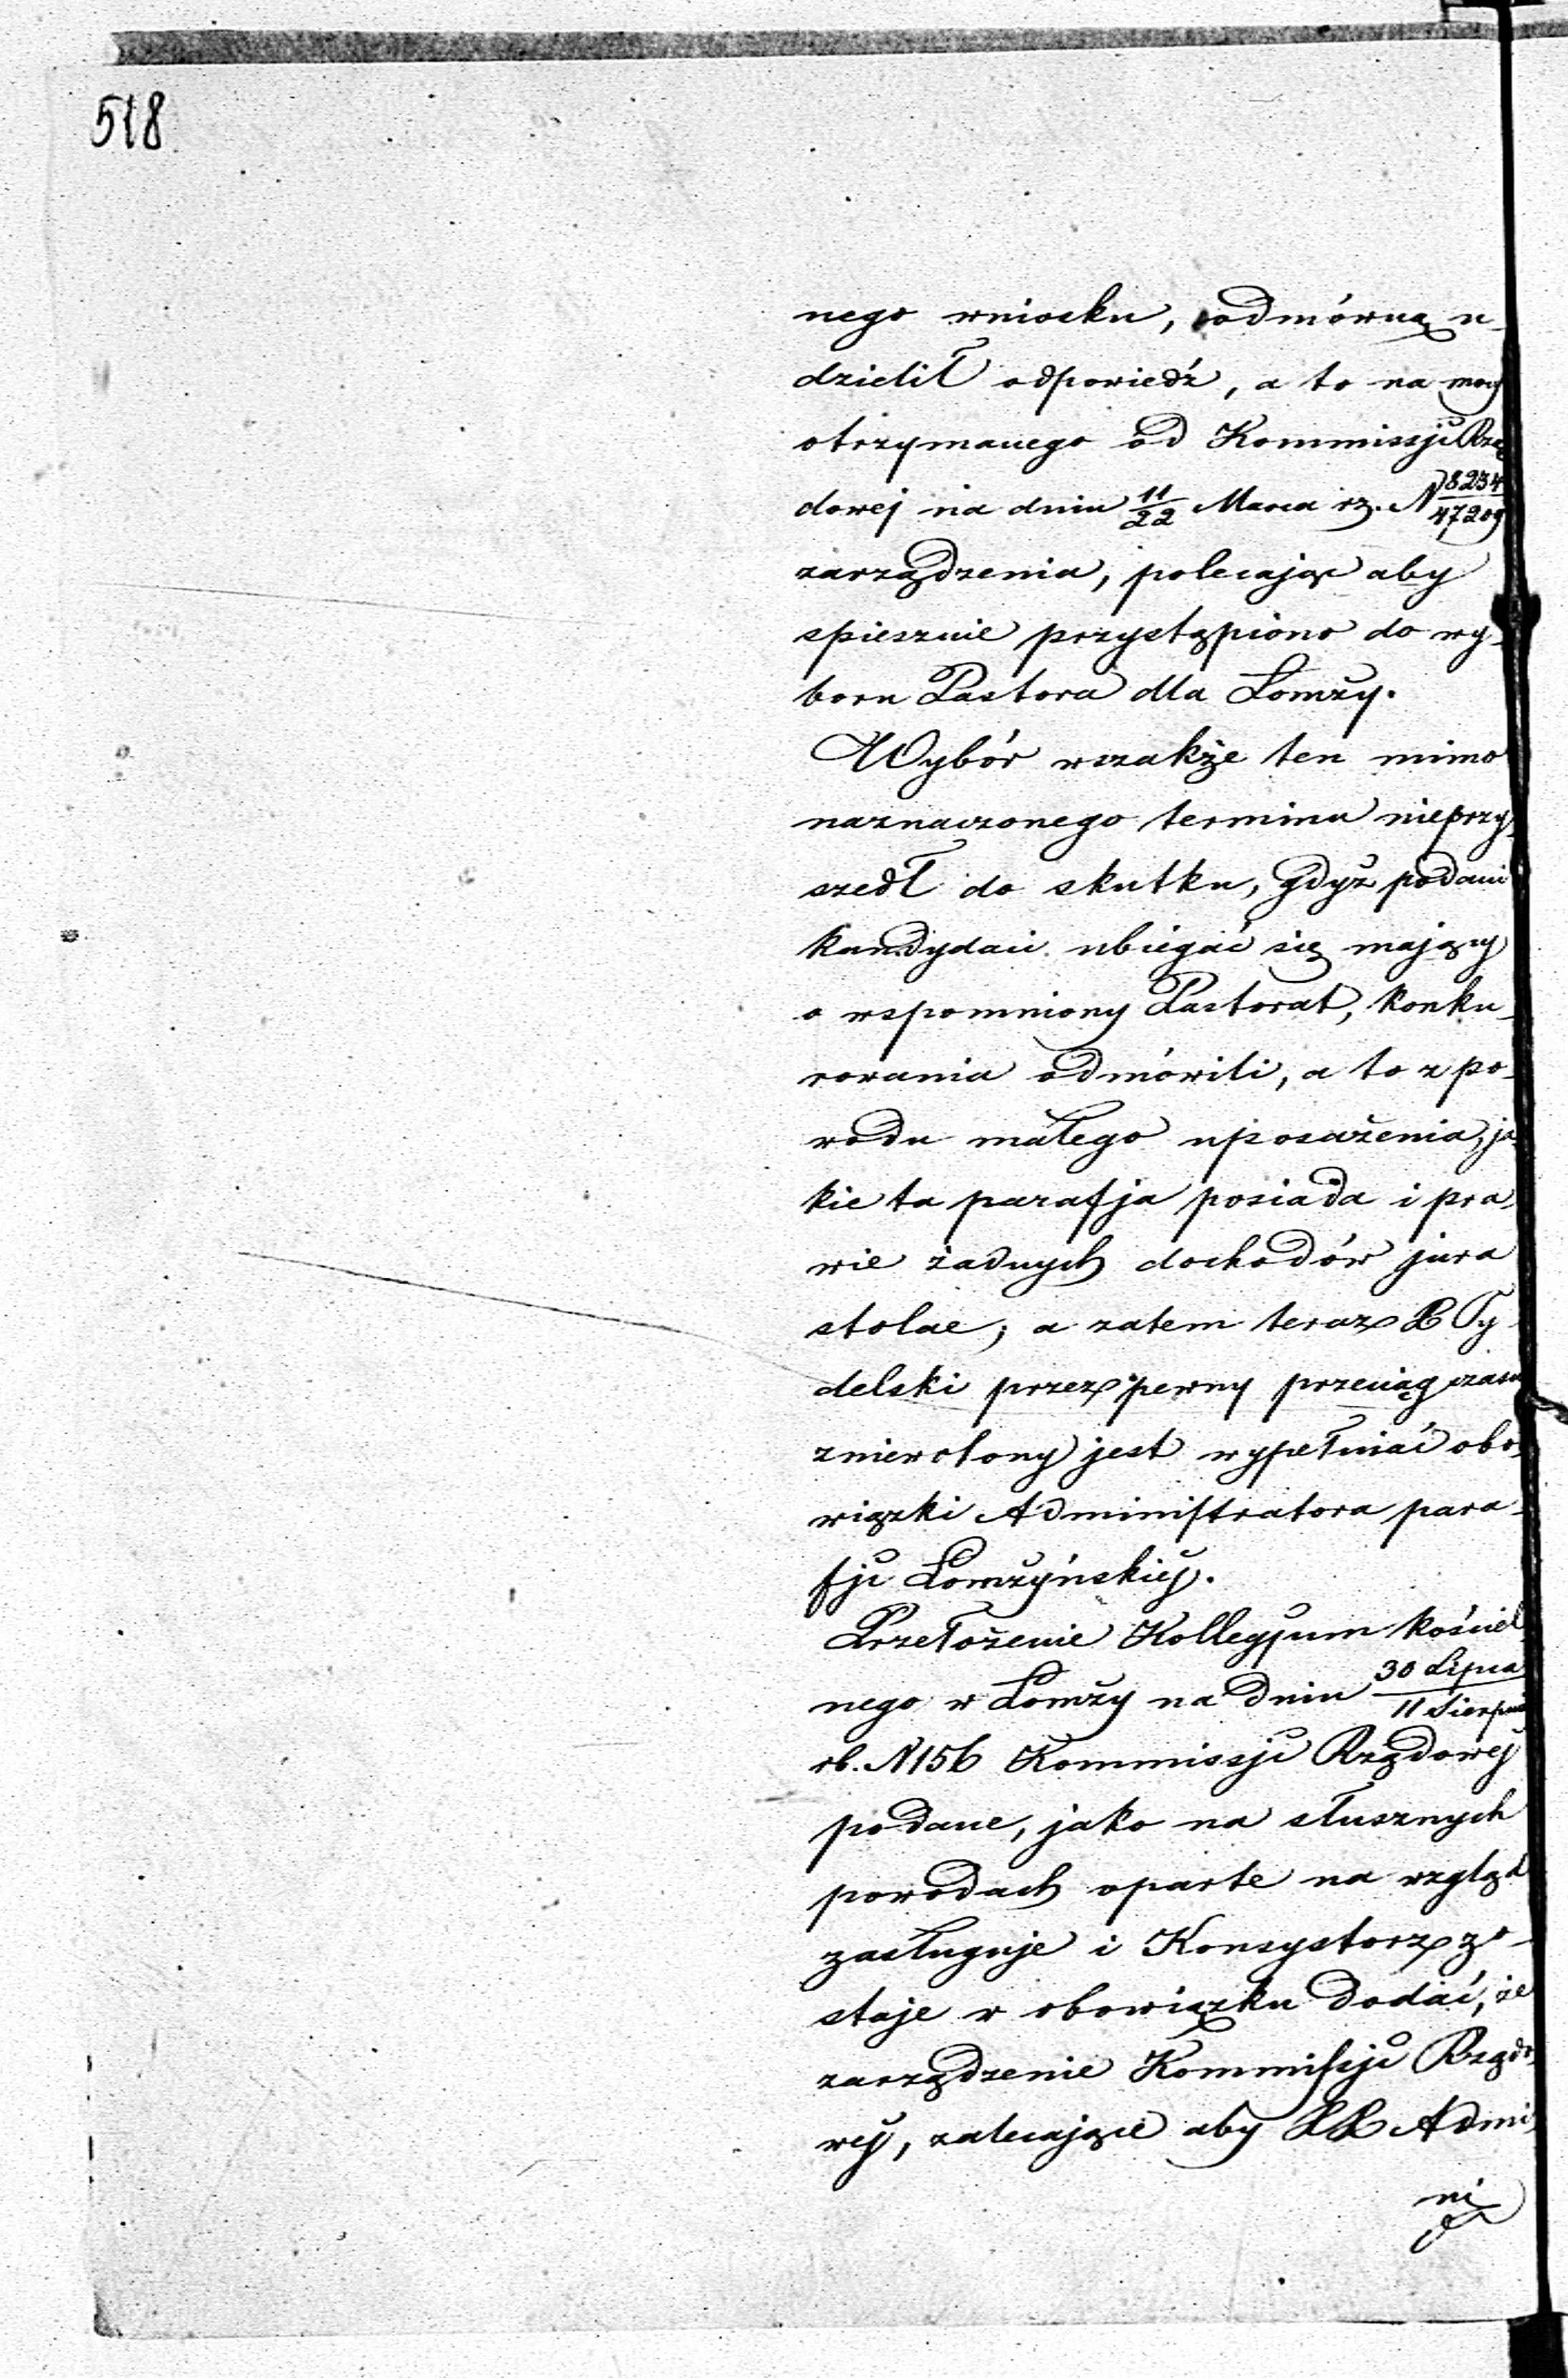 518
nego wniosku, odmówną u-
dzielił odpowiedź, a to na mocy
otrzymanego od Kommissji Rzą
dowej na dniu 11/22 Marca rz. N 8234/47209
zarządzenia, polecając aby
spiesznie przystąpiono do wy-
boru Pastora dla Łomży.
Wybór wszakże ten mimo
naznaczonego terminu nieprzy
szedł do skutku, gdyż podani
kandydaci ubiegać się mający
o wspomniony Pastorat, konku-
rowania odmówili, a to z po-
wodu małego uposażenia, ja-
kie ta parafja posiada i pra
wie żadnych dochodów jura
stolae; a zatem teraz P Ty
delski przez pewny przeciąg czasu
zniewolony jest wypełniać obo-
wiązki Administratora para-
fji Łomżyńskiéj.
Przełożenie Kollegjum kościel
nego w Łomży na dniu 30 Lipca/11 Sierpnia
rb. N 156 Kommissji Rządowéj
podane, jako na słusznych
powodach oparte na wzgląd
zasługuje i Konsystorz zo-
staje w obowiązku dodać, że
zarządzenie Kommissji Rządo
wéj, zalecające aby PP Admi
ni